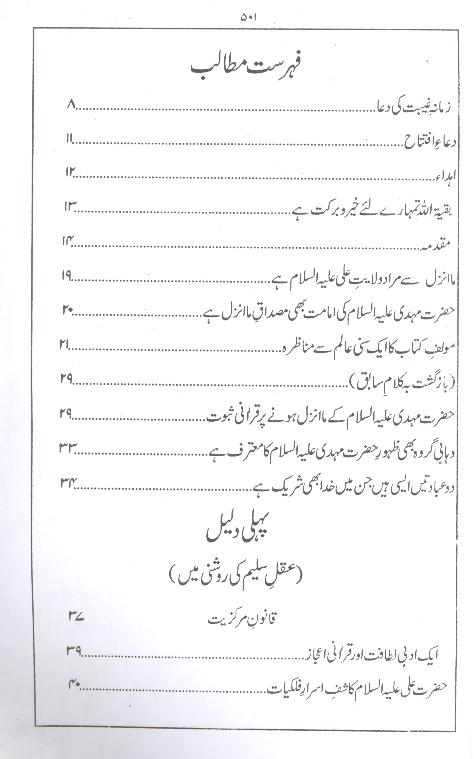 ۵۰۱
فہرست مطالب
زمانۂ غیبت کی دعا........۸
دعاءِ افتتاح........۱۱
اہداء........۱۲
بقیۃ اللہ تمہارے لئے خیر و برکت ہے........۱۳
مقدمہ........۱۴
ما انزل سے مراد ولایتِ علی علیہ السلام ہے........۱۹
حضرت مہدی علیہ السلام کی امامت بھی مصداقِ ما انزل ہے........۲۰
مولفِ کتاب کا ایک سنی عالم سے مناظرہ........۲۱
(بازگشت بہ کلامِ سابق)........۲۹
حضرت مہدی علیہ السلام کے ما انزل ہونے پر قرآنی ثبوت........۲۹
وہابی گروہ بھی ظہورِ حضرت مہدی علیہ السلام کا معترف ہے........۳۳
دو عبادتیں ایسی ہیں جن میں خدا بھی شریک ہے........۳۴
پہلی دلیل
(عقلِ سلیم کی روشنی میں)
قانونِ مرکزیت ۳۷
ایک ادبی لطافت اور قرآنی اعجاز........۳۹
حضرت علی علیہ السلام کاشفِ اسرارِ فلکیات........۴۰